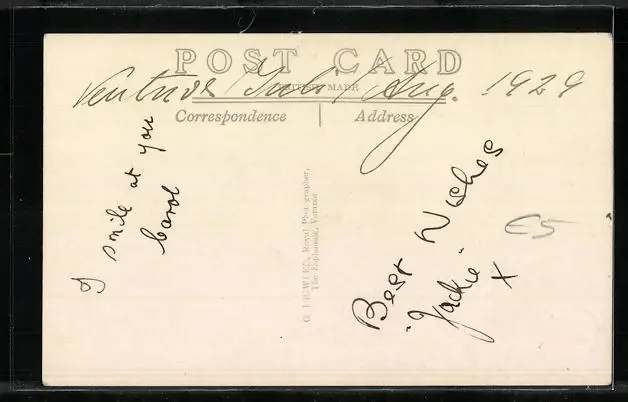 POST CARD
BRITISH MADE
Ventnor Juli / Aug. 1929
Correspondence
Address
I smile at you
Carol
Best Wishes
"Jackie"
X
£5
Royal Photographer,
The Esplanade, Ventnor